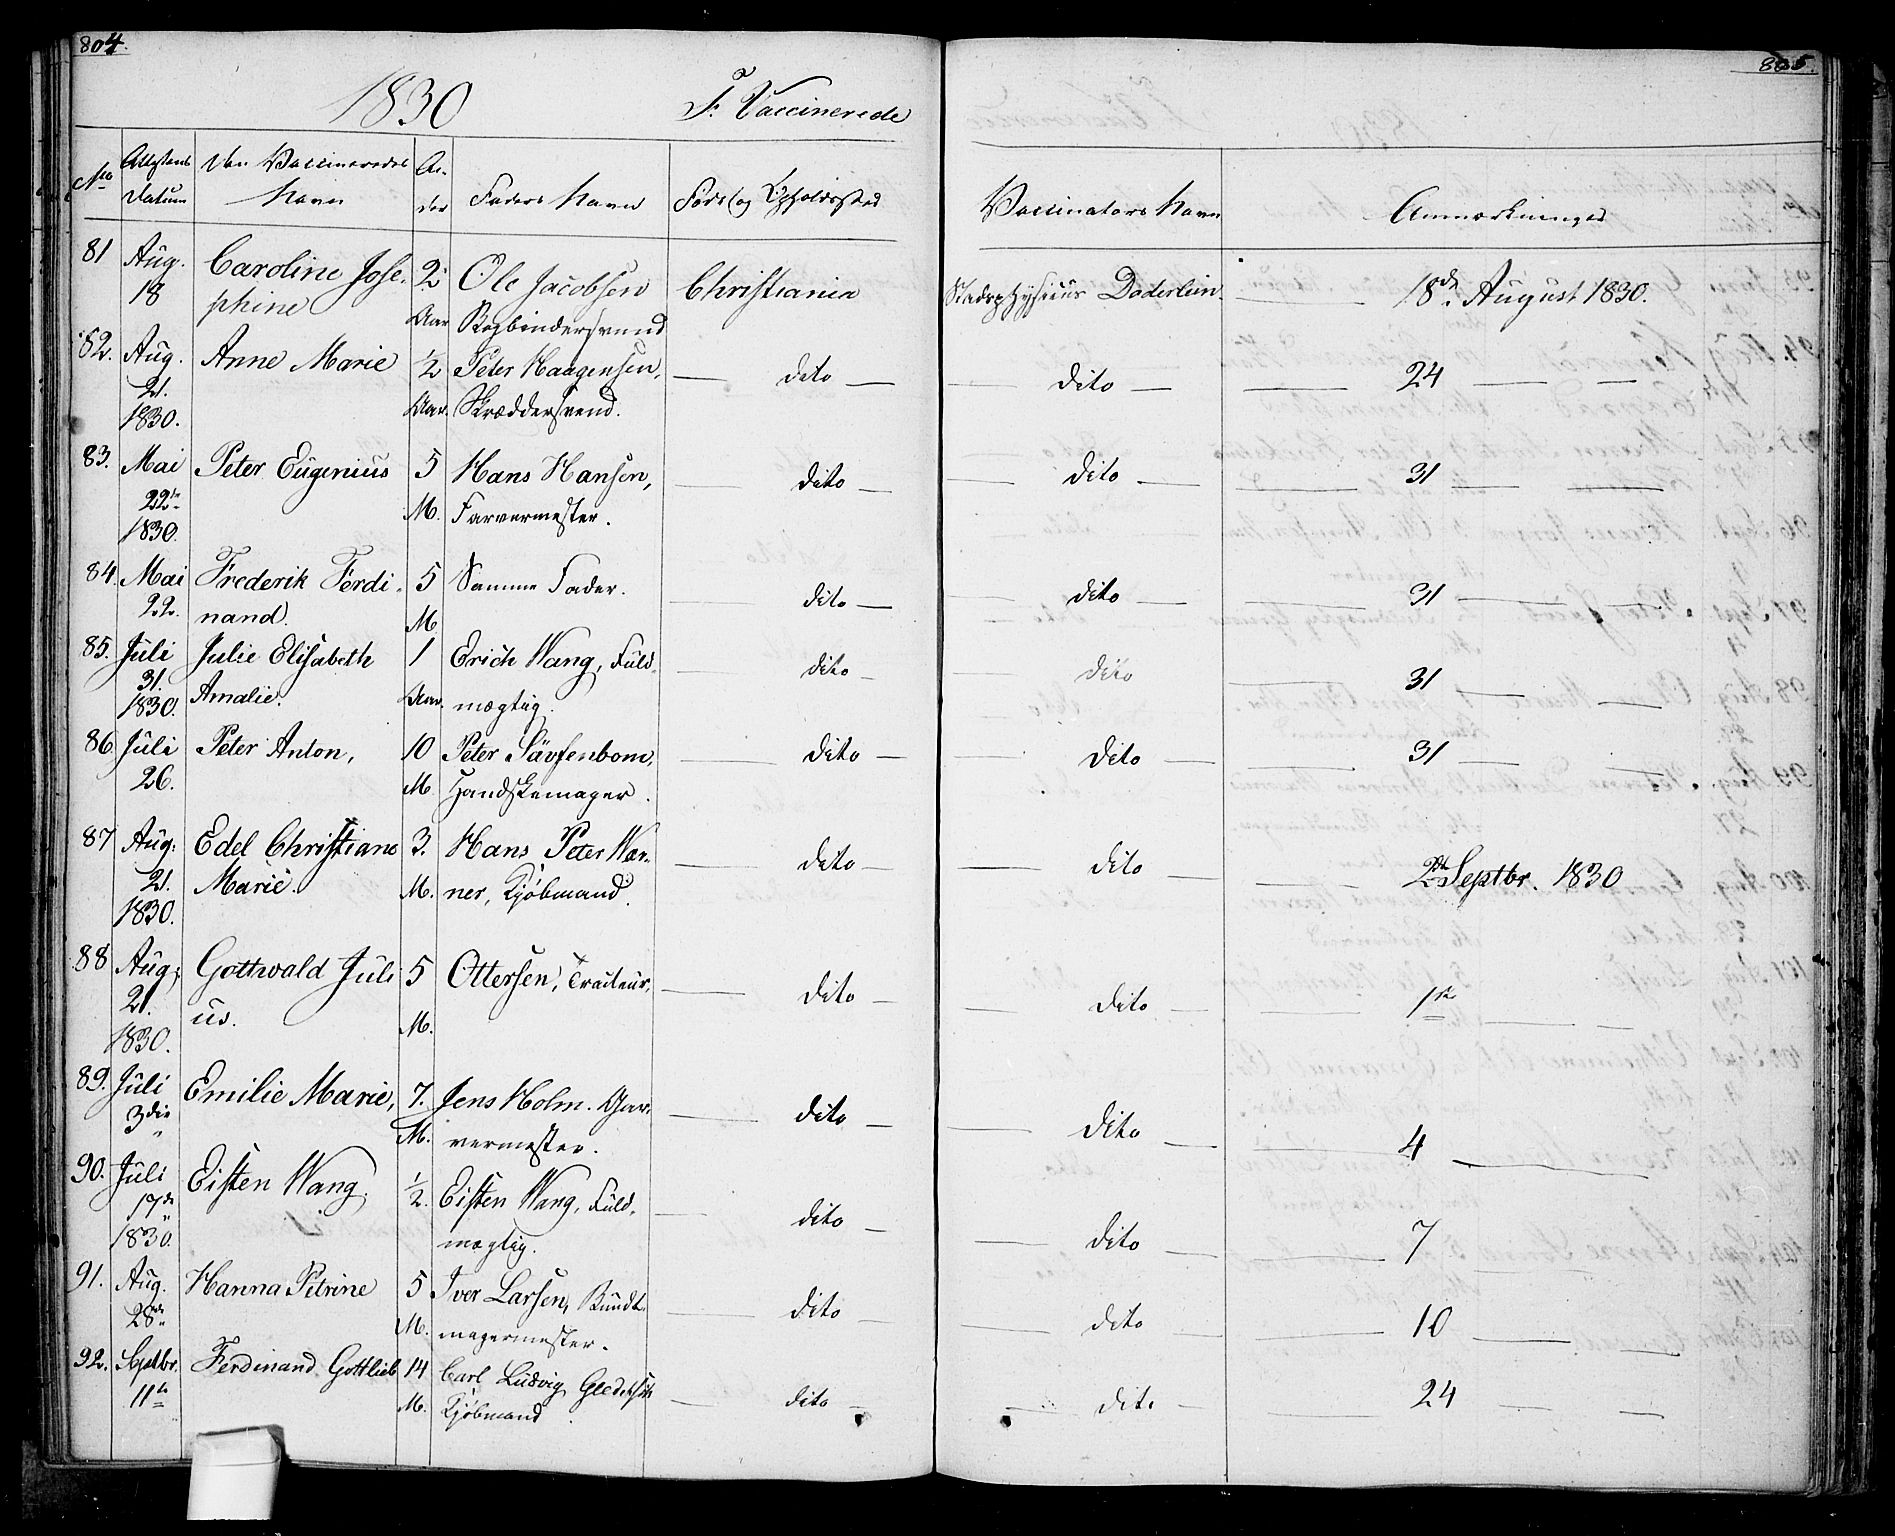 804.
1830 F. Vaccinerede
No Attestens Datum Den Vaccineredes Navn Al- der Faders Navn Føde- og Opholdssted
81 Aug. 18 Caroline Jose- phine 2 Aar Ole Jacobsen Bogbindersvend Christiania
82. Aug. 21. 1830. Anne Marie 1/2 Aar. Peter Haagensen, Skræddersvend. — dito —
83. Mai 22de 1830. Peter Eugenius 5 M. Hans Hansen, Farvermester. — dito —
84. Mai 22. Frederik Ferdi- nand. 5 M Samme Fader. — dito —
85. Juli 31. 1830. Julie Elisabeth Amalie. 1 Aar. Erich Wang, Fuld- mægtig. — dito —
86 Juli 26. Peter Anton, 10 M Peter Handskemager. — dito —
87 Aug. 21. 1830. Edel Christiane Marie. 3. M. Hans Peter War- ner, Kjøbmand. — dito —
88 Aug. 21. 1830. Gottwald Juli- us. 5 M. Ottersen, Traiteur, — dito —
89. Juli 3die Emilie Marie, 7. M. Jens Holm. Gar- vermester. — dito —
90. Juli 17de 1830. Eisten Wang, 1/2. Eisten Wang, Fuld- mægtig. — dito —
91. Aug. 28de Hanna Petrine 5 M. Iver Larsen, Bundt- magermester. — dito —
92. Septbr. 11te Ferdinand Gottlieb 14 M. Carl Ludvig Kjøbmand — dito —
805.
Vaccinators Navn Anmærkninger
Stadsphysicus Døderlein. — 18de August 1830.
— dito — — 24 — —
— dito — — 31 — —
— dito — — 31 — —
— dito — 31 — —
— dito — — 31 — —
— dito — — 2den Septbr. 1830
— dito — — 1ste — —
— dito — — 4 —
— dito — — 7 — —
— dito — — 10 — —
— dito — — 24 — —